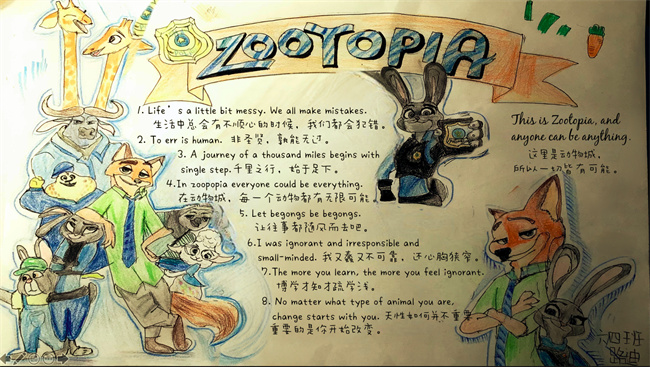 ZOOTOPIA
1. Life's a little bit messy. We all make mistakes.
生活中总会有不顺心的时候，我们都会犯错。
2. To err is human. 非圣贤，孰能无过。
3. A journey of a thousand miles begins with
single step.千里之行，始于足下。
4.In zoopopia everyone could be everything.
在动物城，每一个动物都有无限可能。
5. Let begongs be begongs.
让往事都随风而去吧。
6.I was ignorant and irresponsible and
small-minded. 我又蠢又不可靠，还心胸狭窄。
7.The more you learn, the more you feel ignorant.
博学才知才疏学浅。
8. No matter what type of animal you are,
change starts with you. 天性如何并不重要
重要的是你开始改变。
This is Zootopia, and
anyone can be anything.
这里是动物城，
所以一切皆有可能。
六四班